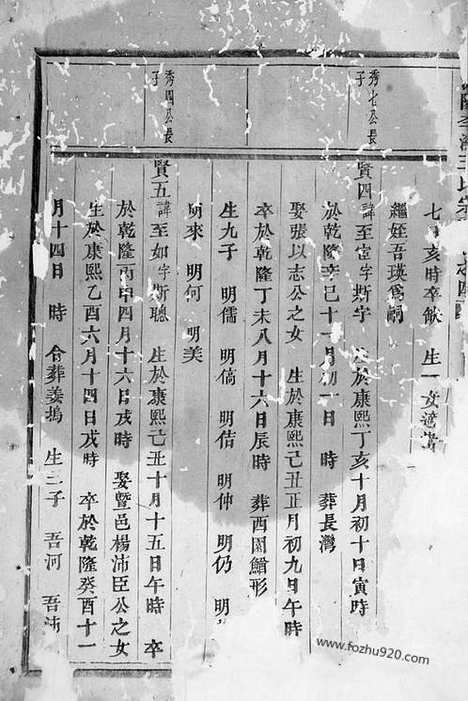 七 亥時卒飲 生一女適
繼姪吾瑛爲嗣
秀七公長子
賢四 諱至 字斯字 生於康熙丁亥十月初十日寅時
於乾隆辛巳十一月初一日 時 葬長灣
娶張以志公之女 生於康熙己丑正月初九日午時
卒於乾隆丁未八月十六日辰時 葬酉園鰌形
生九子 明儒 明傐 明佶 明仲 明仍 明
明來 明何 明美
秀四公長子
賢五 諱至如字斯聰 生於康熙己丑十月十五日午時 卒
於乾隆丙申四月十六日戌時 娶暨邑楊沛臣公之女
生於康熙乙酉六月十四日戌時 卒於乾隆癸酉十一
月十四日 時 合葬姜塢 生二子 吾河 吾沛
www.fozhu920.com